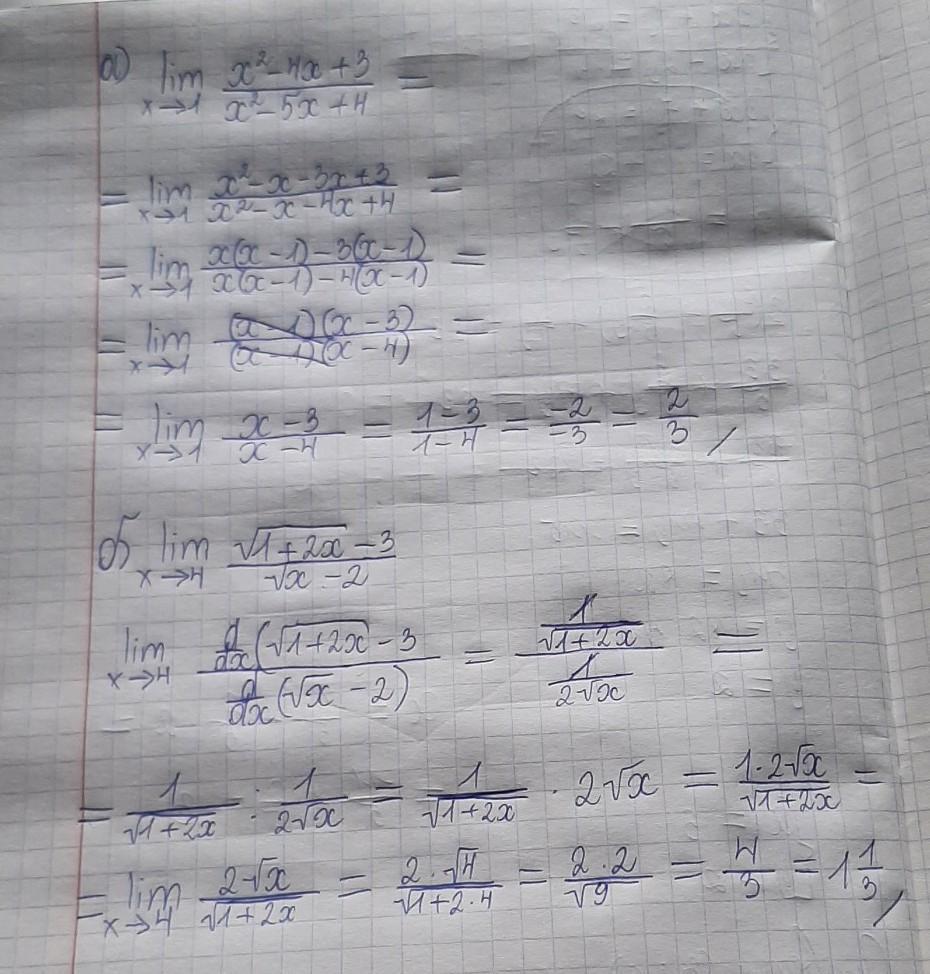 а) lim x→1 (x² - 4x + 3)/(x² - 5x + 4) =
= lim x→1 (x² - x - 3x + 3)/(x² - x - 4x + 4) =
= lim x→1 (x(x - 1) - 3(x - 1))/(x(x - 1) - 4(x - 1)) =
= lim x→1 ((x - 1)(x - 3))/((x - 1)(x - 4)) =
= lim x→1 (x - 3)/(x - 4) = (1 - 3)/(1 - 4) = (-2)/(-3) = 2/3,
б) lim x→4 (√(1 + 2x) - 3)/(√x - 2)
lim x→4 (d/dx(√(1 + 2x) - 3)/(d/dx(√x - 2)) = (1/√(1 + 2x))/(1/(2√x)) =
= 1/√(1 + 2x) : 1/(2√x) = 1/√(1 + 2x) · 2√x = (1 · 2√x)/√(1 + 2x) =
= lim x→4 (2√x)/√(1 + 2x) = (2 · √4)/√(1 + 2 · 4) = (2 · 2)/√9 = 4/3 = 1 1/3,